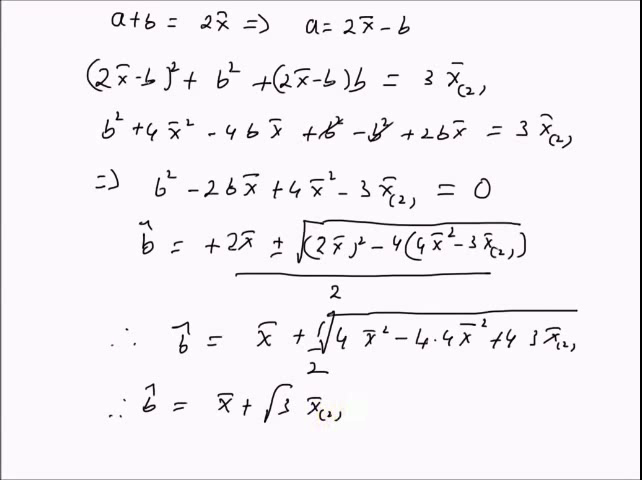 a+b = 2x̄ => a = 2x̄ - b
(2x̄-b)² + b² + (2x̄-b)b = 3 x̄₍₂₎
b² + 4x̄² - 4bx̄ + b² - b² + 2bx̄ = 3 x̄₍₂₎
=> b² - 2bx̄ + 4x̄² - 3x̄₍₂₎ = 0
b̂ = (+2x̄ ± √((2x̄)² - 4(4x̄² - 3x̄₍₂₎))) / 2
∴ b̂ = x̄ + (1/2)√(4x̄² - 4·4x̄² + 4 3x̄₍₂₎)
∴ b̂ = x̄ + √3 x̄₍₂₎